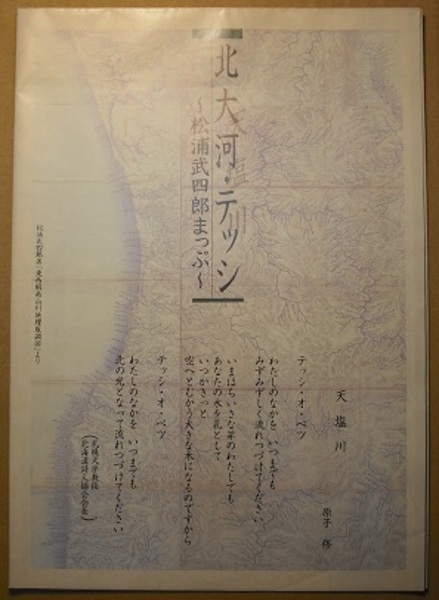 北大河・テッシ
〜松浦武四郎まっぷ〜
天塩川
原子 修
テッシ・オ・ペツ
わたしのなかを いつまでも
みずみずしく流れつづけてください
いまはちいさな芽のわたしでも
あなたの水を乳として
いつかきっと
空へとむかう大きな木になるのですから
テッシ・オ・ペツ
わたしのなかを いつまでも
北の光となって流れつづけてください
(札幌大学教授
北海道詩人協会会長)